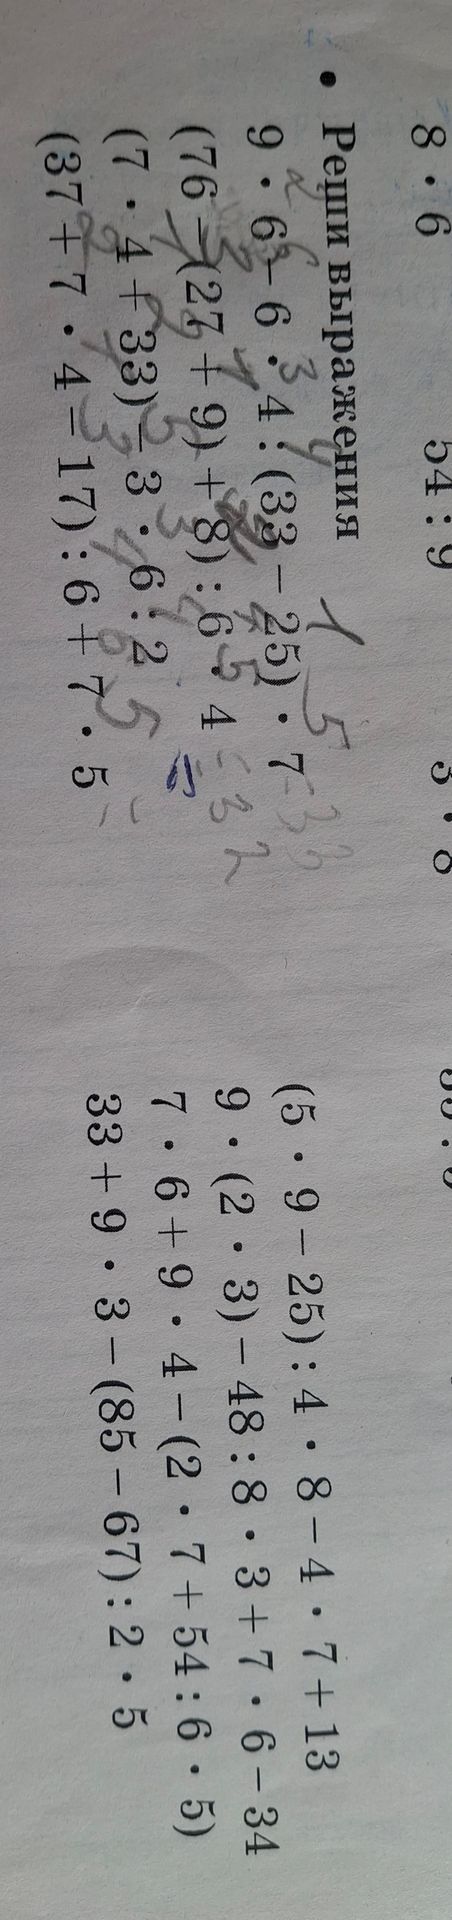 8 · 6 54 : 9 3 · 8
• Реши выражения
9 · 6 – 6 · 4 : (33 – 25) · 7
(76 – (27 + 9) + 8) : 6 · 4 = 32
(7 · 4 + 33) – 3 · 6 : 2 =
(37 + 7 · 4 – 17) : 6 + 7 · 5 =
(5 · 9 – 25) : 4 · 8 – 4 · 7 + 13
9 · (2 · 3) – 48 : 8 · 3 + 7 · 6 – 34
7 · 6 + 9 · 4 – (2 · 7 + 54 : 6 · 5)
33 + 9 · 3 – (85 – 67) : 2 · 5